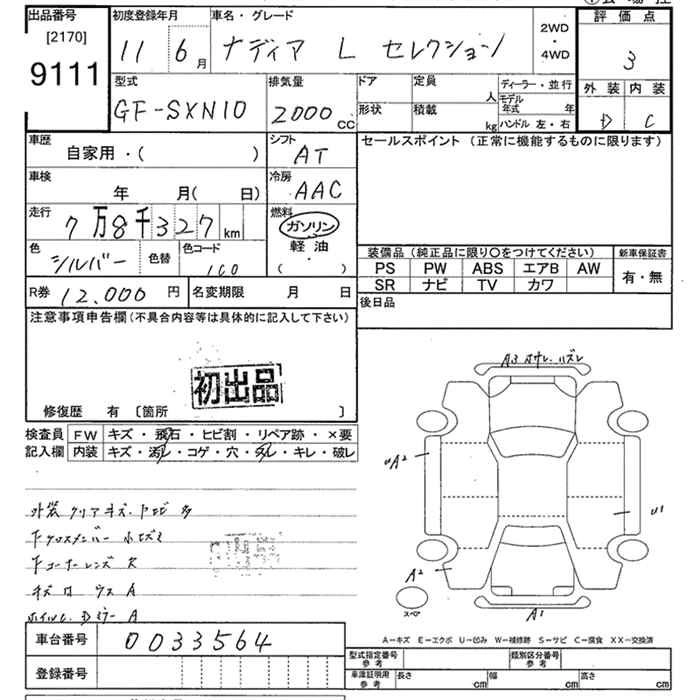 出品番号 [2170] 9111
初度登録年月 11 6月
車名・グレード ナディア L セレクション
2WD・4WD
評価点 3
外装 D 内装 C
型式 GF-SXN10
排気量 2000 cc
ドア 形状
定員 人 積載 kg
ディーラー・並行
モデル年式 年
ハンドル 左・右
車歴 自家用・( )
シフト AT
セールスポイント (正常に機能するものに限ります)
車検 年 月( 日)
冷房 AAC
走行 7万8千327km
燃料 ガソリン 軽油 ( ・ )
色 シルバー 色替 色コード 1C0
装備品 (純正品に限り〇をつけてください) 新車保証書
PS PW ABS エアB AW 有・無
SR ナビ TV カワ
R券 12,000 円 名変期限 月 日
後日品
注意事項申告欄 (不具合内容等は具体的に記入して下さい)
初出品
修復歴 有 〔箇所 〕
検査員 FW キズ・飛石・ヒビ割・リペア跡・×要
記入欄 内装 キズ・汚レ・コゲ・穴・スレ・キレ・破レ
A3
A2
U1
A2
スペア
A1
外装 クリアキズ
Fクロスメンバー
Fコーナーレンズ
A
A
A-キズ E-エクボ U-凹み W-補修跡 S-サビ C-腐食 XX-交換済
車台番号 0033564
型式指定番号 参考 類別区分番号 参考
登録番号
車庫証明用 参考 長さ cm 幅 cm 高さ cm